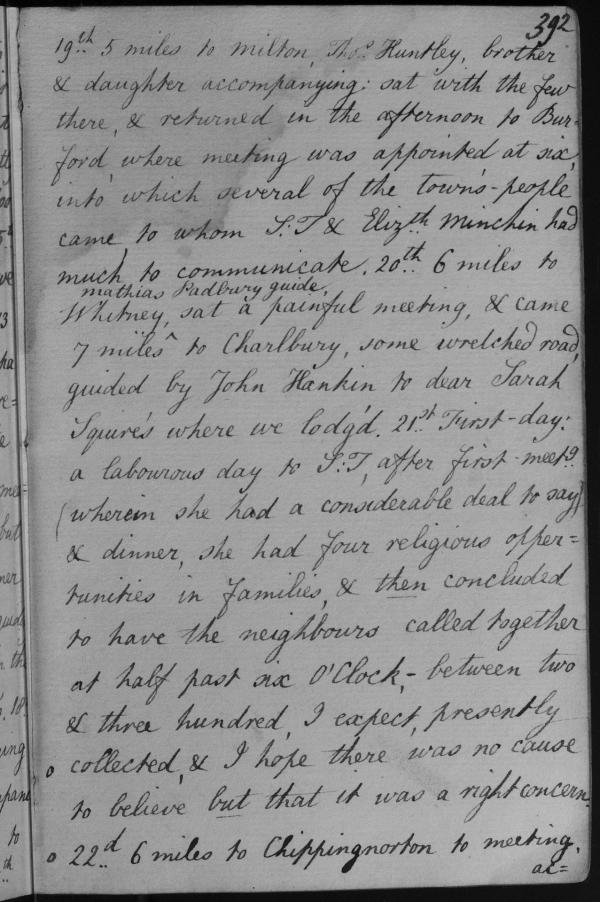 392
19th 5 miles to Milton, Thos. Huntley, brother
& daughter accompanying: sat with the few
there, & returned in the afternoon to Bur-
ford, where meeting was appointed at six,
into which several of the town's-people
came, to whom S:T & Elizth Minchin had
much to communicate. 20th 6 miles to
mathias Padbury guide,
Whitney, sat a painful meeting, & came
7 miles ^ to Charlbury, some wretched road,
guided by John Hankin to dear Sarah
Squire's where we lodg'd. 21st First-day:
a labourous day to S:T, after first-meetg
(wherein she had a considerable deal to say)
& dinner, she had four religious opper=
tunities in families, & then concluded
to have the neighbours called together
at half past six O'Clock,- between two
& three hundred, I expect, presently
o collected, & I hope there was no cause
to believe but that it was a right concern.
o 22d 6 miles to Chippingnorton to meeting,
ac=